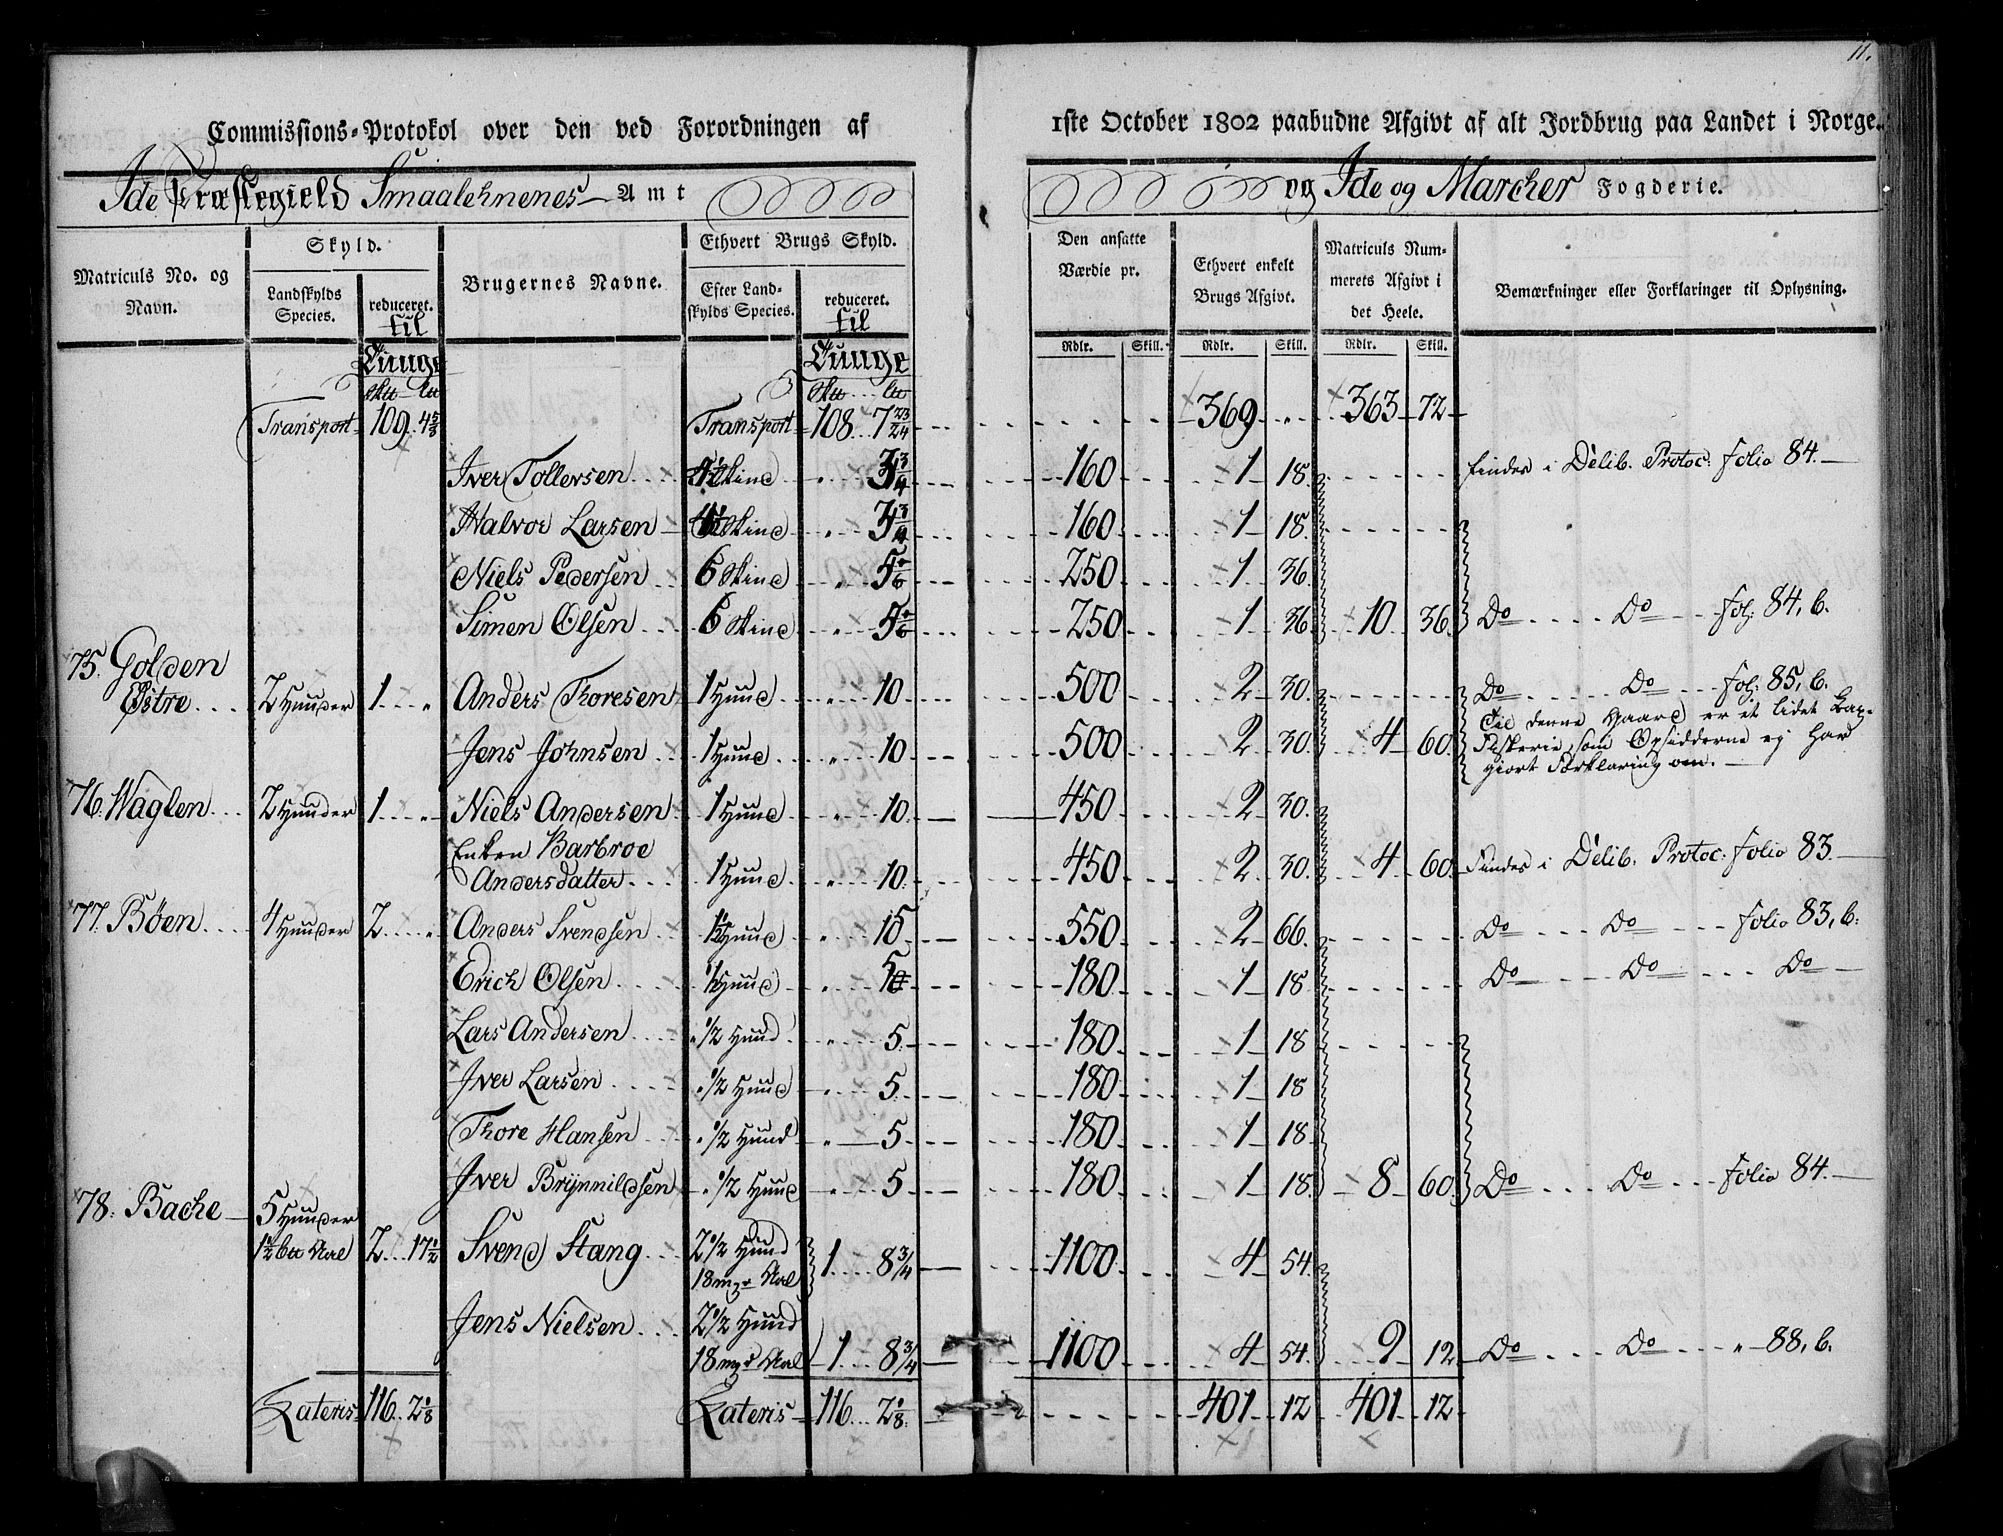 11.
Commissions-Protokol over den ved Forordningen af 1ste October 1802 paabudne Afgivt af alt Jordbrug paa Landet i Norge.
Ide Præstegield Smaalehnenes Amt og Ide og Marcher Fogderie.
Matriculs No. og Navn. | Skyld. | Brugernes Navne. | Ethvert Brugs Skyld. | Den ansatte Værdie pr. | Ethvert enkelt Brugs Afgivt. | Matriculs Nummerets Afgivt i det Heele. | Bemærkninger eller Forklaringer til Oplysning.
Landskylds Species. | reduceret. til Tunge | Efter Landskylds Species. | reduceret. til Tunge | Rdlr. | Skill. | Rdlr. | Skill. | Rdlr. | Skill.
Transport 109 4 5/8 Transport 108 7 23/24 369 363 72
Iver Tollevsen 4 1/2 Skind 3 3/4 160 1 18 findes i Delib. Protoc: folio 84.
Halvor Larsen 4 1/2 Skind 3 3/4 160 1 18
Niels Pedersen 6 Skind 5 250 1 36
Simen Olsen 6 Skind 5 250 1 36 10 36 Do Do fol: 84, b.
75. Golden Østre 2 Hunder 1 Anders Thoresen 1 Hund 10 500 2 30 Do Do fol: 85, b.
Til denne Gaard er et lidet
Jens Johnsen 1 Hund 10 500 2 30 4 60 Fiskerie som Opsidderne ej har
giort Forklaring om.
76. Waglen 2 Hunder 1 Niels Andersen 1 Hund 10 450 2 30
Enken Barbroe
Andersdatter 1 Hund 10 450 2 30 4 60 Findes i Delib. Protoc: folio 83.
77. Böen 4 Hunder 2 Anders Svendsen 1 1/2 Hund 15 550 2 66 Do Do folio 83, b:
Erich Olsen 1/2 Hund 5 180 1 18 Do Do Do
Lars Andersen 1/2 Hund 5 180 1 18
Iver Larsen 1/2 Hund 5 180 1 18
Thore Hansen 1/2 Hund 5 180 1 18
Iver Brynnildsen 1/2 Hund 5 180 1 18 8 60 Do Do folio 84.
78. Backe 5 Hunder
1 1/2 Smal 2 17 1/2 Svend Stang 2 1/2 Hund
18 mrr Smal 1 8 3/4 1100 4 54
Jens Nielsen 2 1/2 Hund
18 mrr Smal 1 8 3/4 1100 4 54 9 12 Do Do " 88, b.
Lateris 116 2 1/8 Lateris 116 2 1/8 401 12 401 12